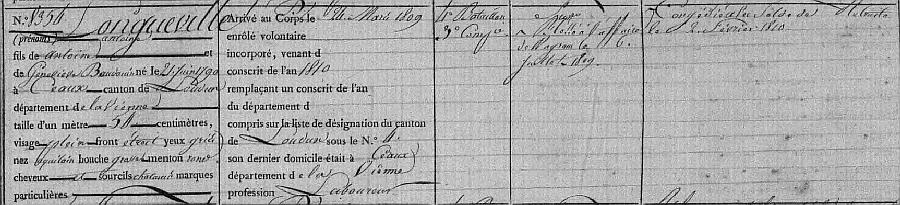 N.° 1354 Longueville
(prénoms) antoine
fils de antoine et
de Geneviève Baudouin né le 21 juin 1790
à Ceaux canton de Loudun
département de la Vienne
taille d'un mètre 54 centimètres,
visage plein front étroit yeux gris
nez aquilain bouche grande menton rond
cheveux et sourcils chatains marques
particulières
Arrivé au Corps le 24 Mars 1809
enrôlé volontaire
incorporé, venant d
conscrit de l'an 1810
remplaçant un conscrit de l'an
du département d
compris sur la liste de désignation du canton
de Loudun sous le N.° 4.
son dernier domicile était à Ceaux
département de la Vienne
profession Laboureur
Bataillon
3e Comp.ie
à l'affaire
de Wagram le 6
juillet 1809
Congédié solde de retraite
le 2 février 1810